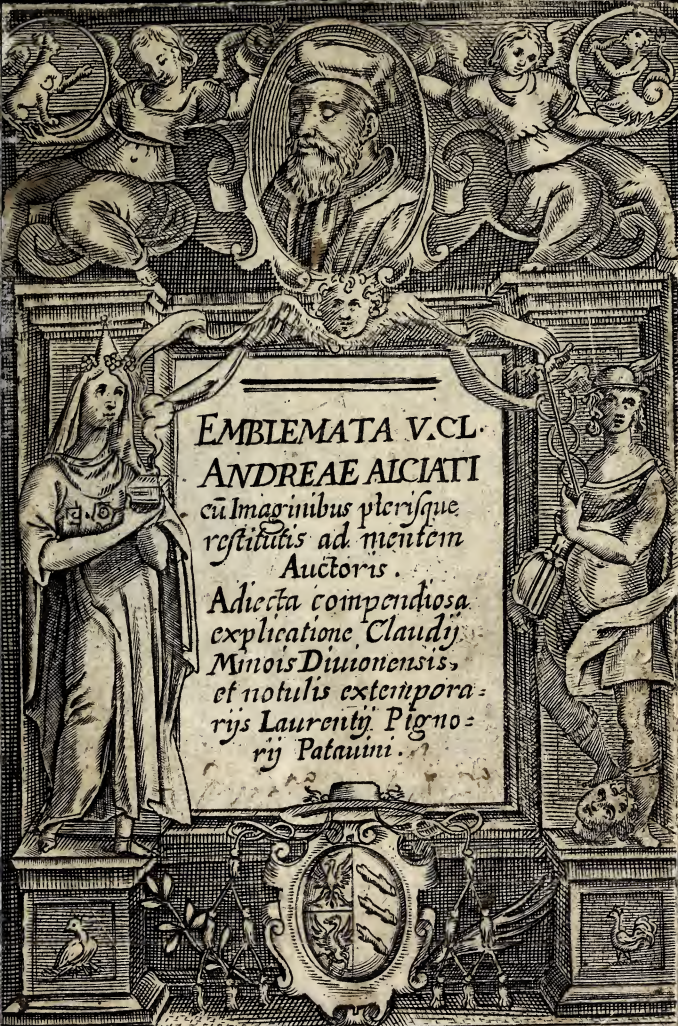 EMBLEMATA V.CL.
ANDREAE ALCIATI
cū Imaginibus plerisque
restitutis ad mentem
Auctoris.
Adiecta compendiosa
explicatione Claudij
Minois Diuionensis,
et notulis extempora=
rijs Laurentij Pigno=
rij Patauini.